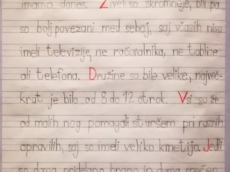 imamo danes. Živeli so skromneje, bili pa
so bolj povezani med seboj, saj včasih niso
imeli televizije, ne računalnika, ne tablice
ali telefona. Družine so bile velike, največ-
krat je bilo od 8 do 12 otrok. Vsi so že
od malih nog pomagali staršem pri raznih
opravilih, saj so imeli veliko kmetijo. Jedli
so